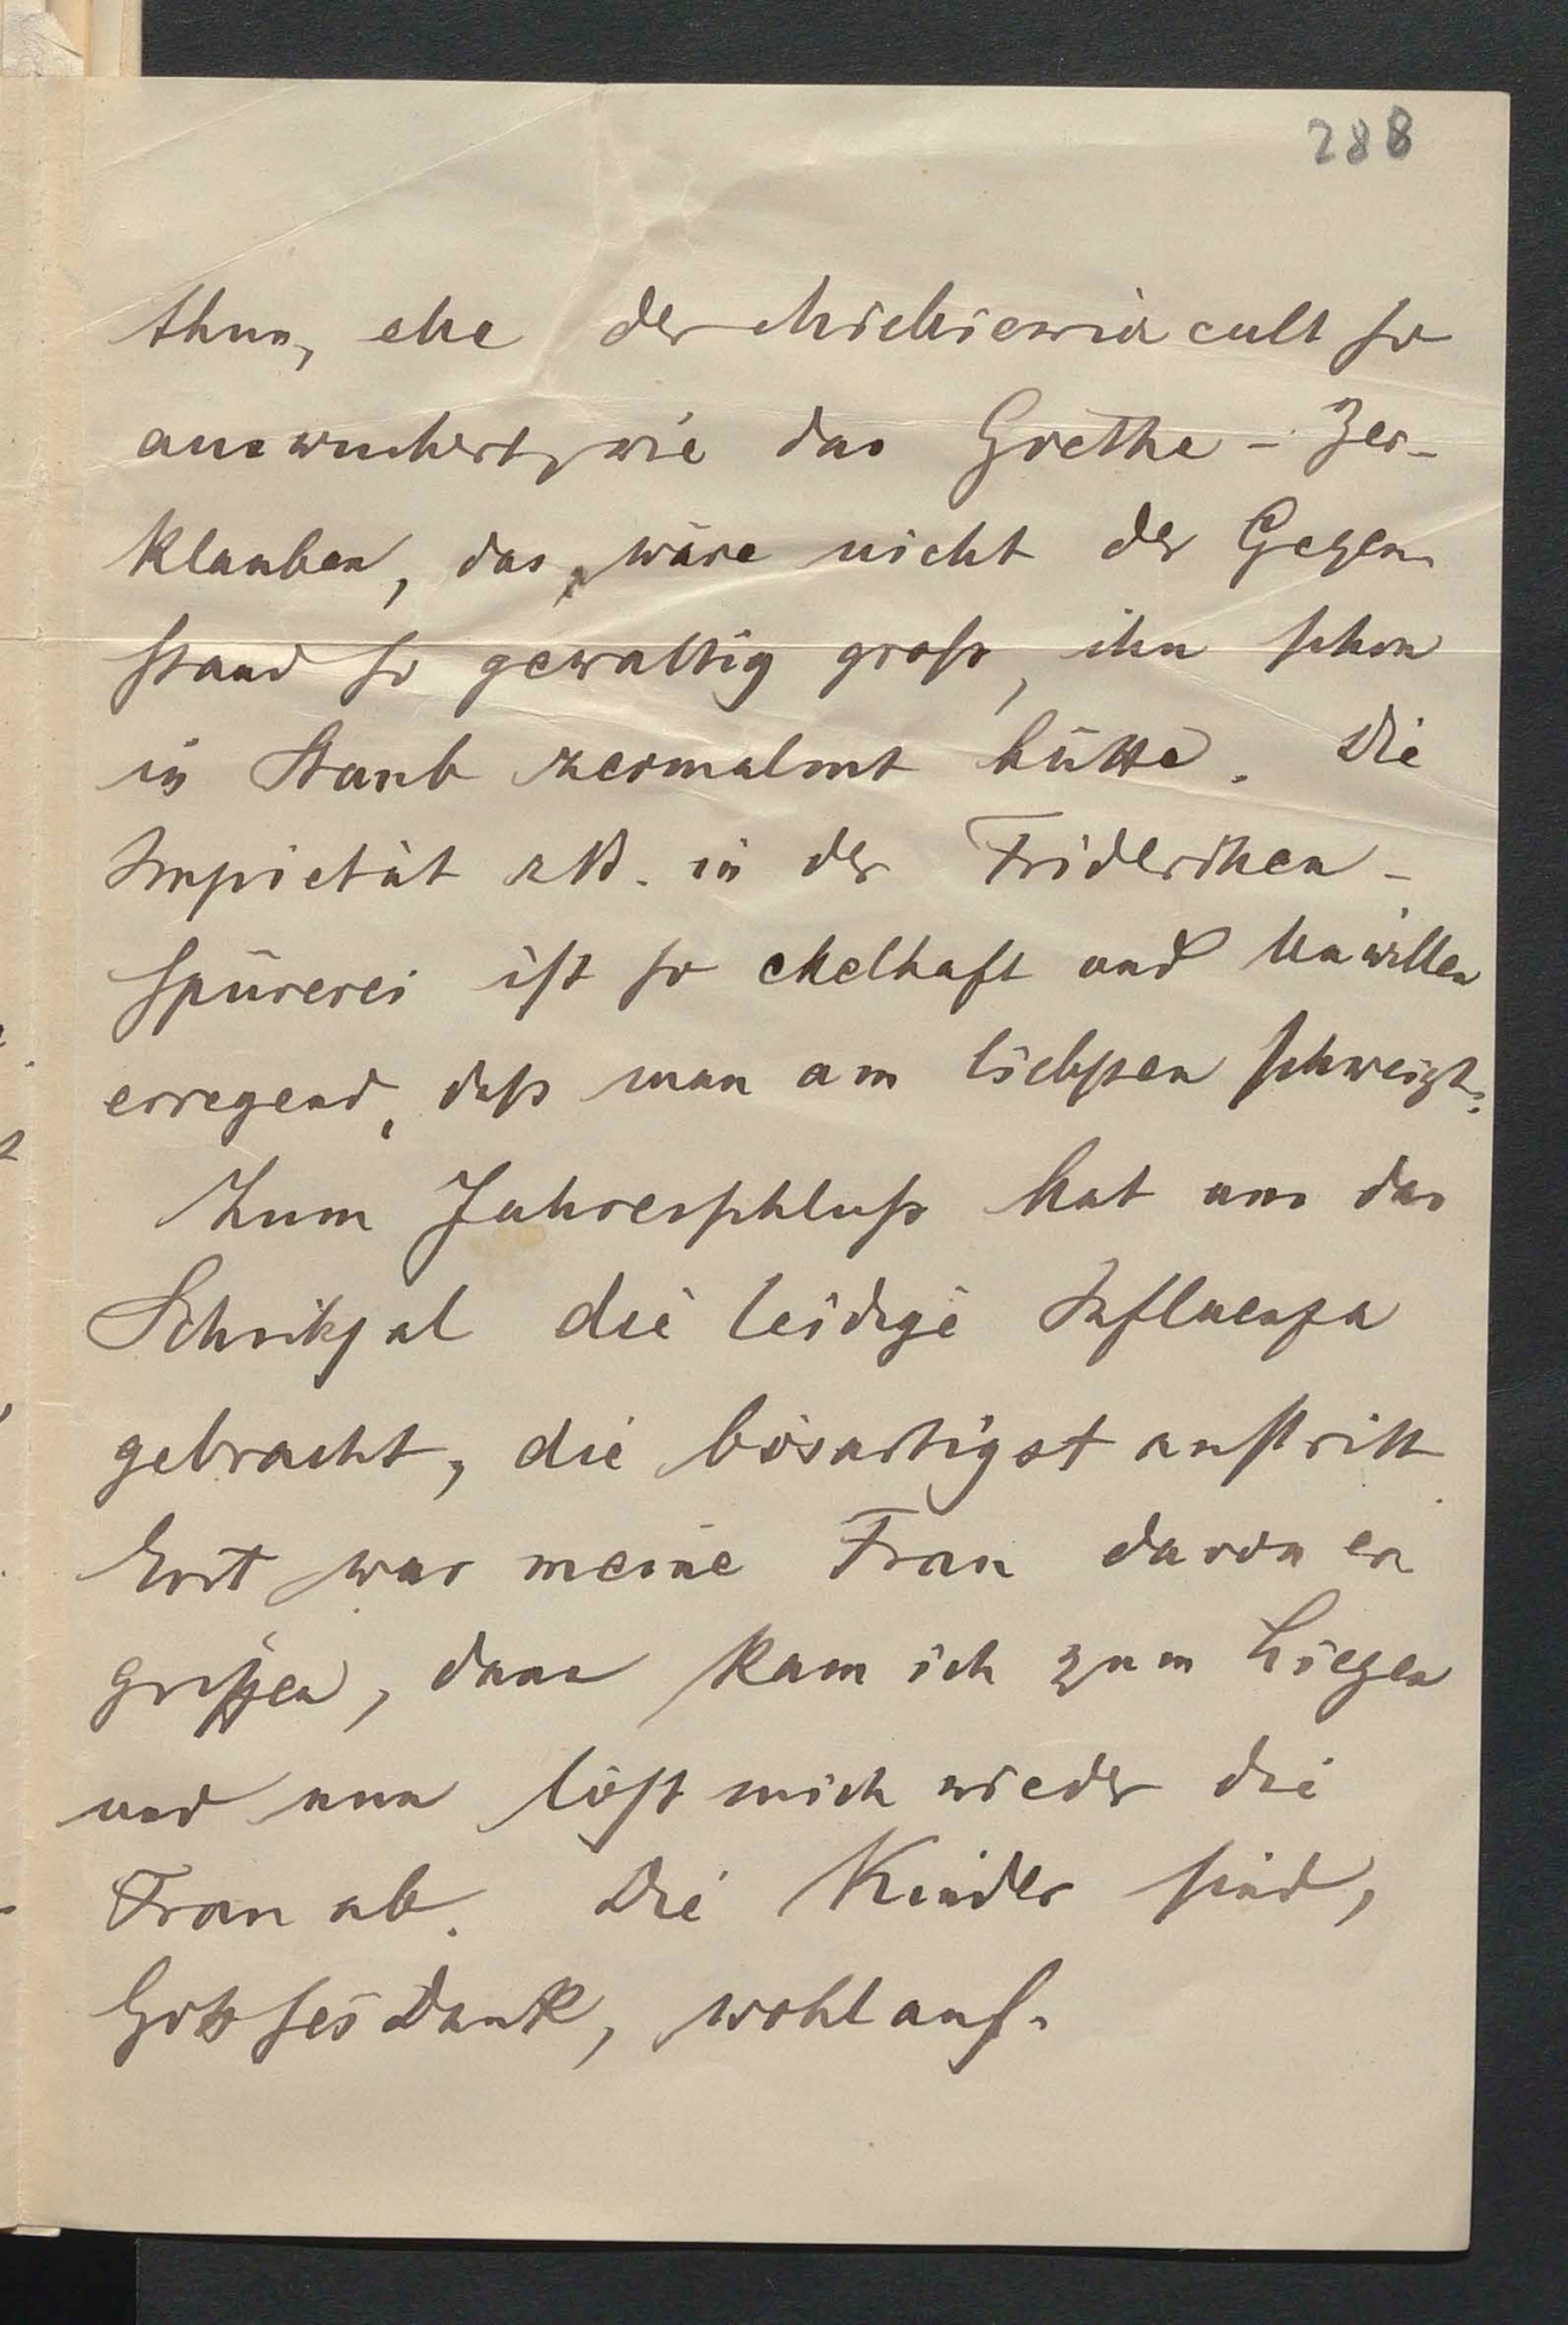 288
thun, ehe der Mickiewicz cult so
auswuchert, wie das Goethe - Zer-
klauben, das, wäre nicht der Gegen
stand so gewaltig groß, ihn schon
in Staub zermalmt hätte. Die
Impietät z.B. in der Frideriken-
spürerei ist so ekelhaft und Unwillen
erregend, daß man am liebsten schweigt.
Zum Jahresschluß hat uns das
Schicksal die leidige Influenza
gebracht, die bösartigst auftritt.
Erst war meine Frau davon er
griffen, dann kam ich zum Liegen
und nun löst mich wieder die
Frau ab. Die Kinder sind,
Gott sei Dank, wohlauf.